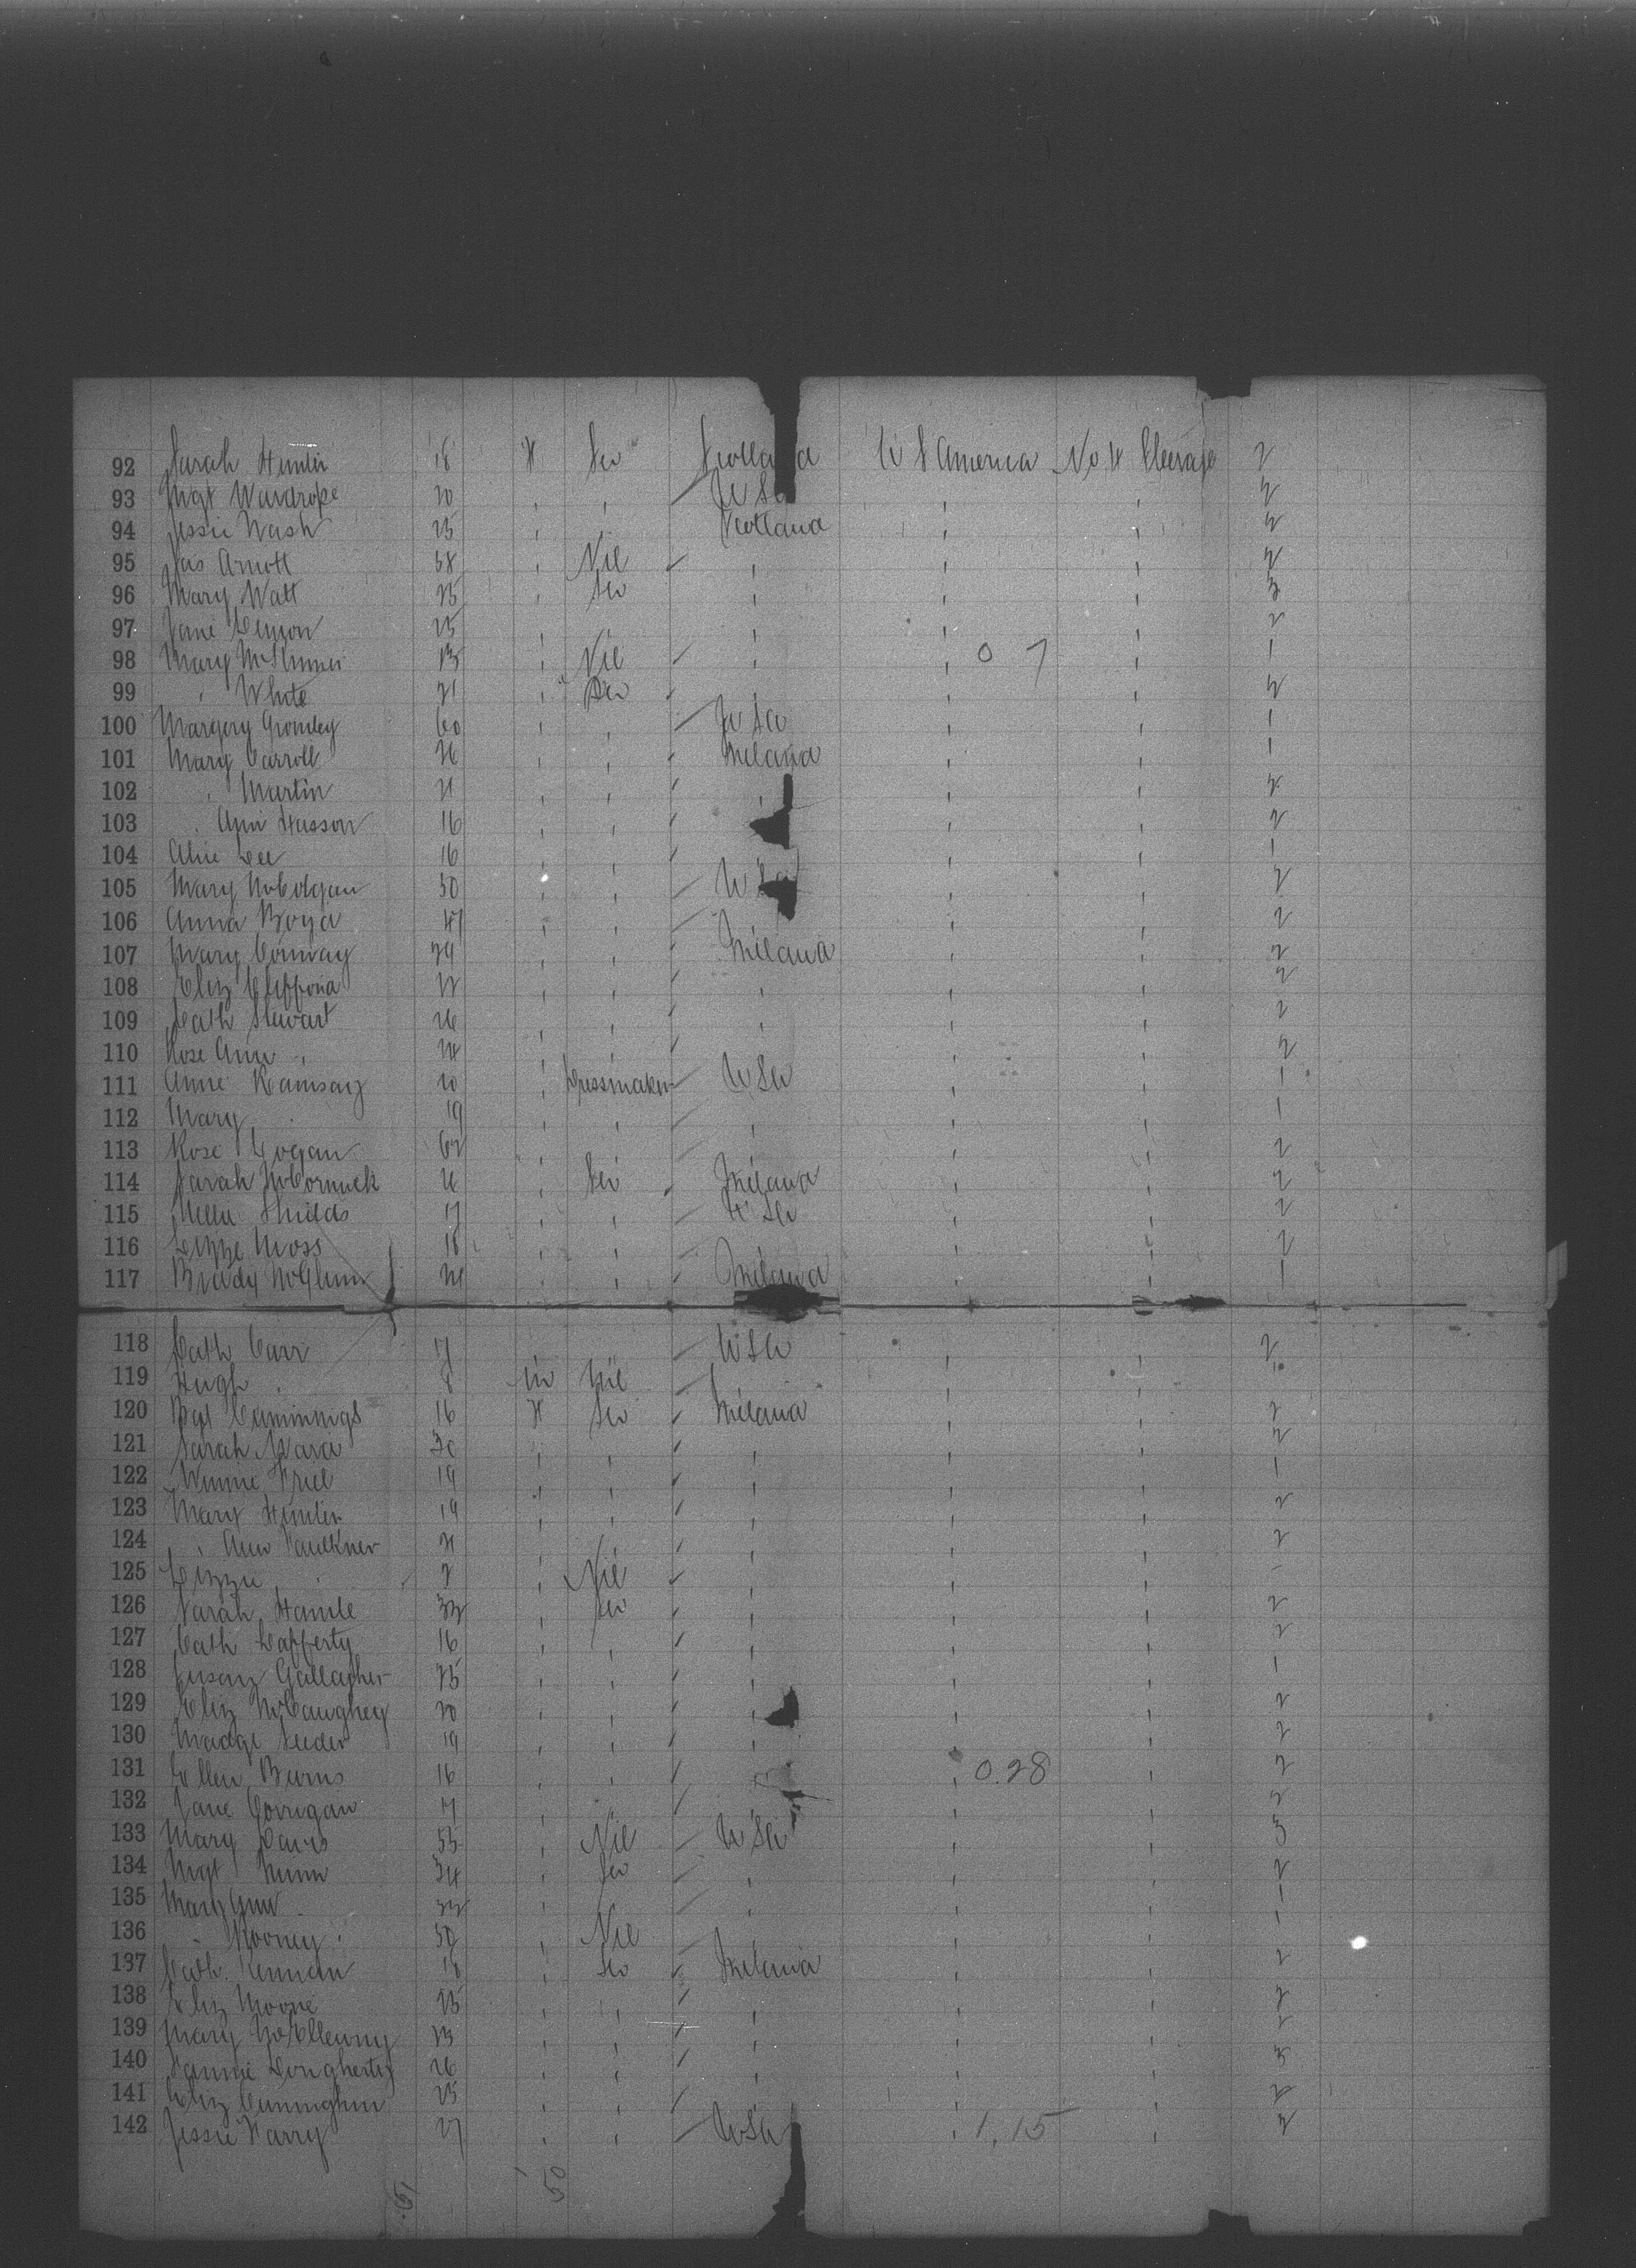 92 Sarah Hunter 18 F Ser Scotland U S America No 4 Steerage 2
93 Mgt Wardrope 20 " " U S A " " 2
94 Jessie Wash 25 " Scotland " " 2
95 Jas Arnott 58 " Nil " " " 2
96 Mary Watt 25 " Ser " " " 3
97 Jane 25 " " " " " 2
98 Mary " Nil " " 0 7 " 1
99 " White 21 " Ser " " " 2
100 Margery Gromley 60 " " U S A " " 1
101 Mary Carroll 26 " " Ireland " " 1
102 " Martin 21 " " " " " 2
103 " Ann Hasson 16 " " " " 2
104 Alice Lee 16 " " " " 1
105 Mary McColgan 50 " " U S A " " 2
106 Anna Boyd 47 " " " " " 2
107 Mary Conway 29 " " Ireland " " 2
108 Eliz Clifford 22 " " " " " 2
109 Cath Stewart 26 " " " " " 2
110 Rose Ann " 24 " " " " 2
111 Anne Ramsay 20 " Dressmaker U S A " " 1
112 Mary " 19 " " " " " 1
113 Rose Logan 62 " " " " " 2
114 Sarah McCormick 26 " Ser Ireland " " 2
115 Nellie Shields 17 " " U S A " " 2
116 Lizzie Moss 18 " " " " 2
117 Bridy McGlinn 24 " " Ireland " " 1
118 Cath Carr 17 " U S A " " 2
119 Hugh " 8 m Nil " " "
120 Bgt Cummings 16 F Ser Ireland " " 2
121 Sarah Ward 30 " " " " " 2
122 Winnie Friel 19 " " " " " 1
123 Mary Hunter 19 " " " " " 2
124 " Ann Faulkner 21 " " " " " 2
125 Lizzie " 2 " Nil " " " -
126 Sarah 32 " Ser " " " 2
127 Cath Lafferty 16 " " " " " 2
128 Susan Gallagher 25 " " " " " 1
129 Eliz McCaughey 20 " " " " " 2
130 Madge 19 " " " " " 2
131 Ellen Burns 16 " " " 0.28 " 2
132 Jane Corrigan 17 " " " " 2
133 Mary Davis 55 " Nil U S A " " 3
134 Mgt Nunn 34 " Ser " " " 2
135 Mary Ann " 32 " " " " " 1
136 " Rooney " 50 " Nil " " " 1
137 Cath 18 " Ser Ireland " " 2
138 Eliz Moore 25 " " " " " 2
139 Mary 23 " " " " " 2
140 Fannie Dougherty 26 " " " " " 3
141 Eliz Cuninghm 25 " " " " " 2
142 Jessie Harry 27 " " U S A " 1.15 " 2
50